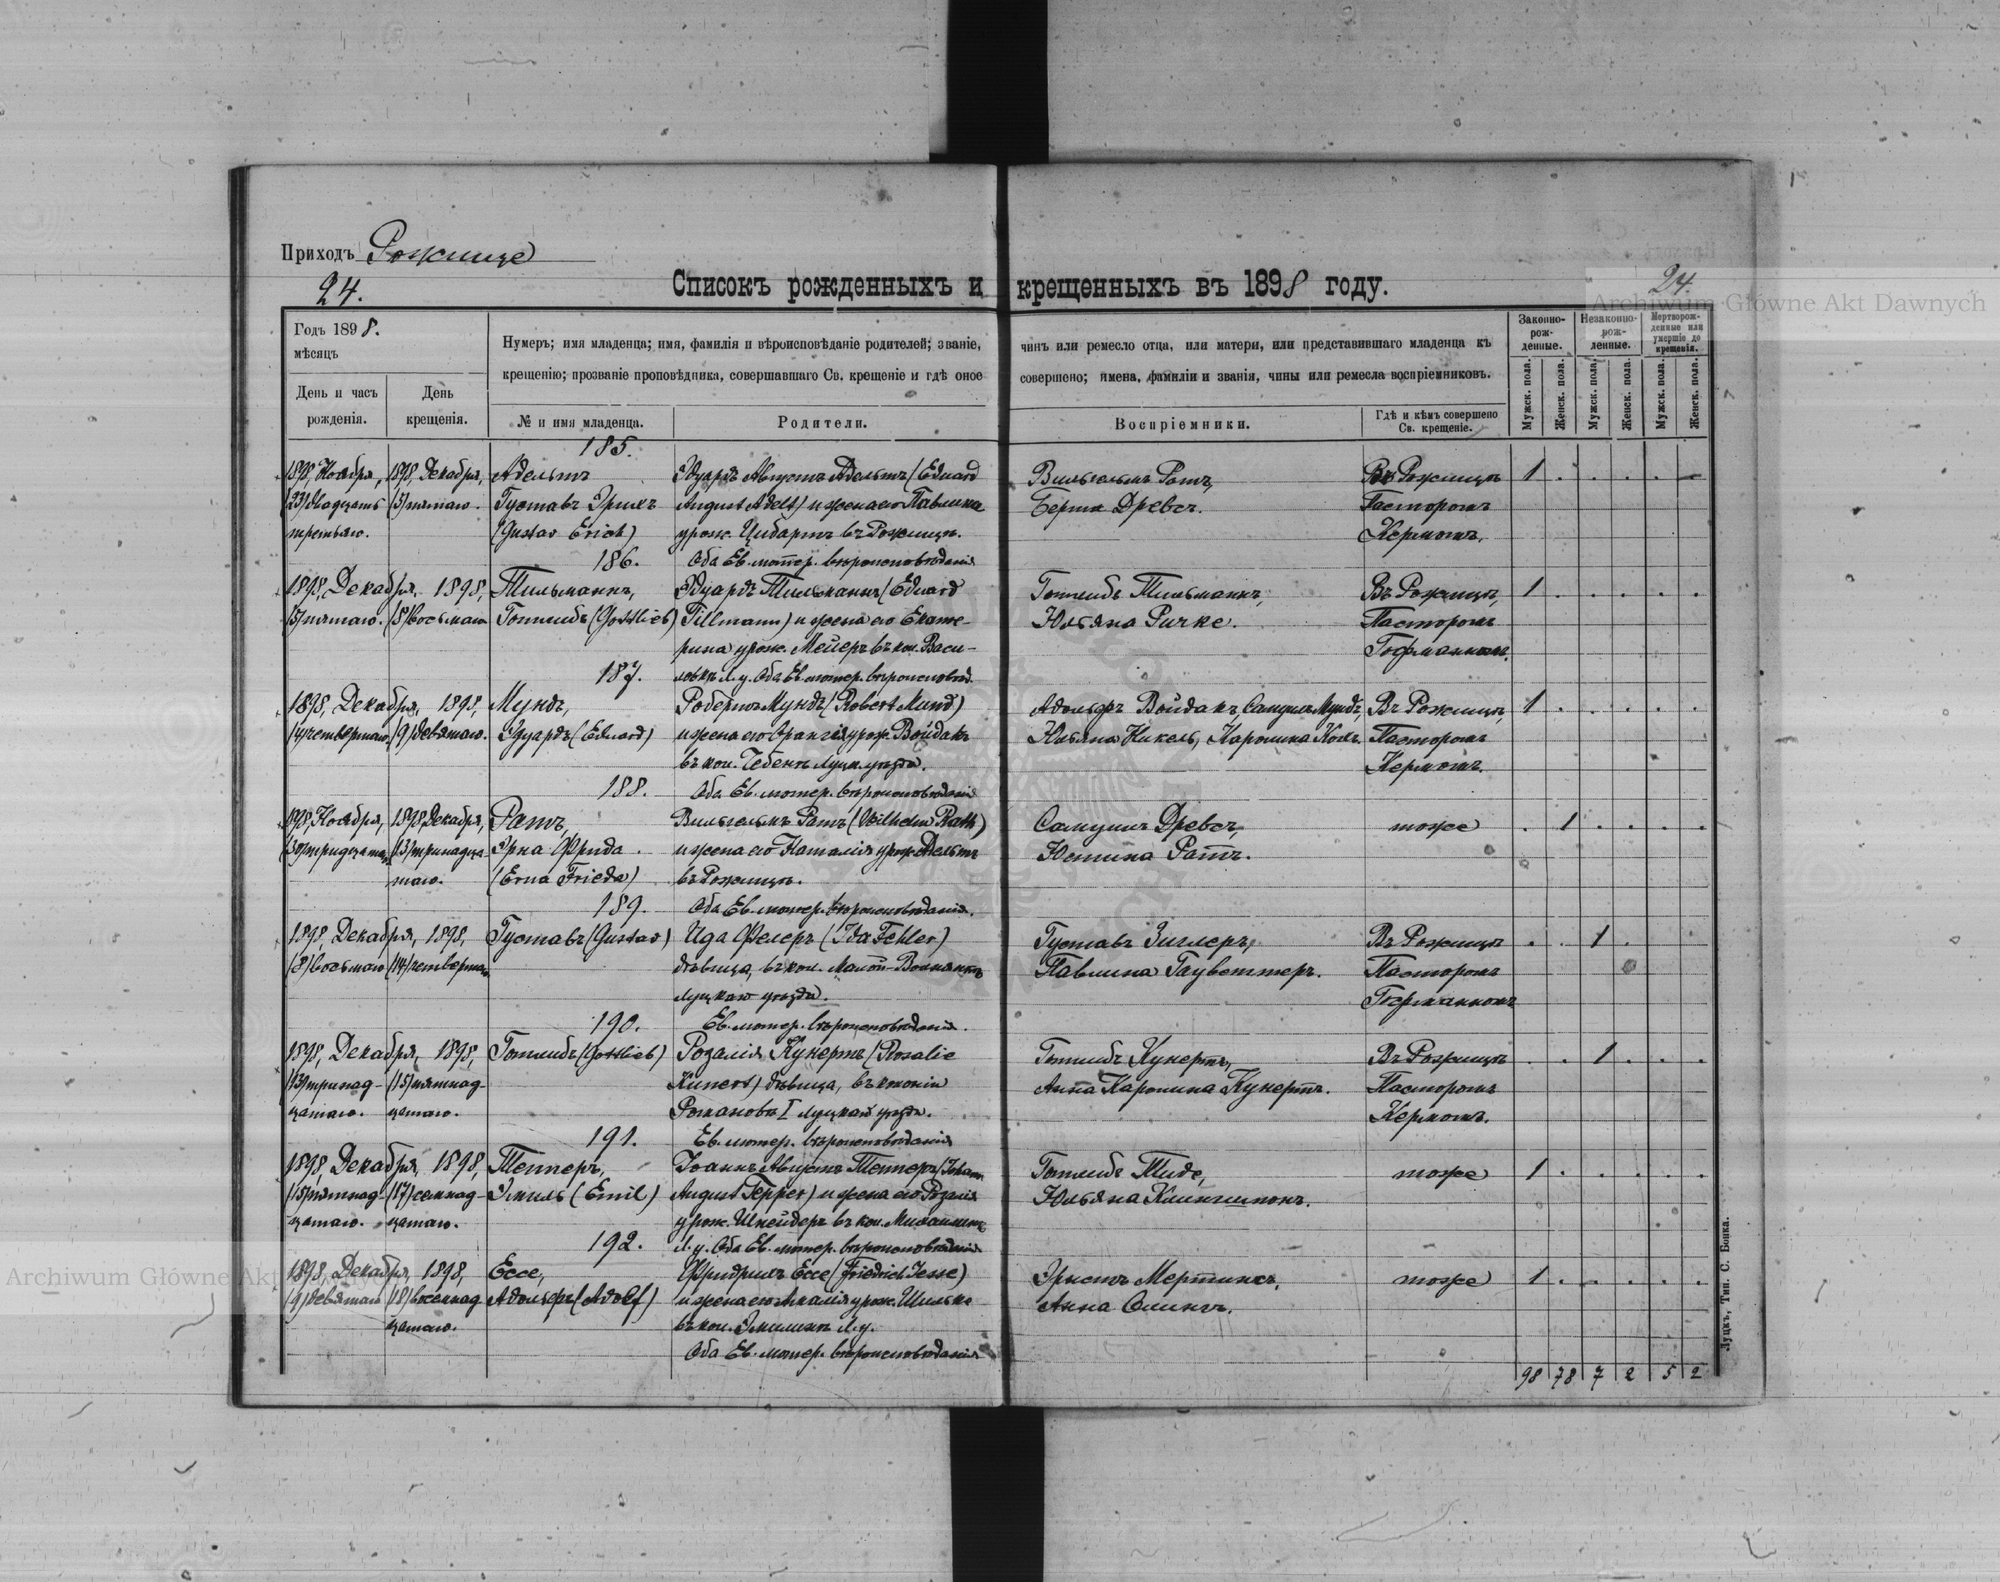 Приходъ Рожище
24.
24.
Списокъ рожденныхъ и крещенныхъ въ 1898 году.
Archiwum Główne Akt Dawnych
Годъ 1898.
мѣсяцъ
День и часъ
рожденія.
День
крещенія.
Нумеръ; имя младенца; имя, фамилія и вѣроисповѣданіе родителей; званіе,
чинъ или ремесло отца, или матери, или представившаго младенца къ
крещенію; прозваніе проповѣдника, совершавшаго Св. крещеніе и гдѣ оное
совершено; имена, фамиліи и званія, чины или ремесла воспріемниковъ.
№ и имя младенца.
Родители.
Воспріемники.
Гдѣ и кѣмъ совершено
Св. крещеніе.
Законно-
рож-
денные.
Незаконно-
рож-
ленные.
Мертворож-
денные или
умершіе до
крещенія.
Мужск. пола.
Женск. пола.
Мужск. пола.
Женск. пола.
Мужск. пола.
Женск. пола.
185.
1898, Ноября, 1898, Декабря, Адельтъ Эдуардъ Августъ Адельтъ (Eduard Вильгельмъ Ратъ, Въ Рожищѣ 1
(23) двадцать (5) пятаго. Густавъ Эрихъ August Adelt) и жена его Павлина Берта Древсъ. Пасторомъ
третьяго. (Gustav Erich) урож. Цибартъ въ Рожищѣ. Кермомъ.
186. Оба Ев. лютер. вѣроисповѣданія
1898, Декабря, 1898, Тильманнъ, Эдуардъ Тильманнъ (Eduard Готлибъ Тильманнъ, Въ Рожищѣ, 1
(5) пятаго. (8) восьмаго Готлибъ (Gottlieb) Tillmann) и жена его Екате- Юльяна Ричке. Пасторомъ
рина урож. Мейеръ въ кол. Васи- Гофманномъ.
187. левкѣ Л. у. Оба Ев. лютер. вѣроисповѣд.
1898, Декабря, 1898, Мундъ, Робертъ Мундъ (Robert Mund) Адольфъ Войдакъ, Самуилъ Мундъ, Въ Рожищѣ, 1
(4) четвертаго. (9) девятаго. Эдуардъ (Eduard) и жена его урож. Войдакъ Юльяна Никель, Каролина Пасторомъ
въ кол. Луцк. уѣзда. Кермомъ.
188. Оба Ев. лютер. вѣроисповѣданія
1898, Ноября, 1898, Декабря, Ратъ, Вильгельмъ Ратъ (Wilhelm Rath) Самуилъ Древсъ, тоже 1
(30) тридцатаго (13) тринадца- Эрна Фрида и жена его Наталія урож. Адельтъ Юстина Ратъ.
таго. (Erna Frieda) въ Рожищѣ.
189. Оба Ев. лютер. вѣроисповѣданія.
1898, Декабря, 1898, Густавъ (Gustav) Ида Фелеръ (Ida Fehler) Густавъ Зиглеръ, Въ Рожищѣ 1
(8) восьмаго (14) четвертаго дѣвица, въ кол. Павлина Гауветтеръ. Пасторомъ
Луцкаго уѣзда.
190. Ев. лютер. вѣроисповѣданія.
1898, Декабря, 1898, Готлибъ (Gottlieb) Розалія Кунертъ (Rosalie Готлибъ Кунертъ, Въ Рожищѣ 1
(13) тринад- (15) пятнад- Kunert) дѣвица, въ колоніи Анна Каролина Кунертъ. Пасторомъ
цатаго. цатаго. Романовкѣ I Луцкаго уѣзда. Кермомъ.
191. Ев. лютер. вѣроисповѣданія
1898, Декабря, 1898, Тепперъ, Іоаннъ Августъ Тепперъ (Johann Готлибъ Тиде, тоже 1
(15) пятнад- (17) семнад- Эмиль (Emil) August Tepper) и жена его Розалія Юльяна
цатаго. цатаго. урож. Шнейдеръ въ кол.
192. Л. у. Оба Ев. лютер. вѣроисповѣданія
1898, Декабря, 1898, Ессе, Фридрихъ Ессе (Friedrich Jesse) Эрнстъ Мертинсъ, тоже 1
(9) девятаго (18) восемнад- Адольфъ (Adolf) и жена его Амалія урож. Анна
цатаго. въ кол. Л. у.
Оба Ев. лютер. вѣроисповѣданія
98 78 7 2 5 2
Луцкъ, Тип. С. Бонка.
Archiwum Główne Akt